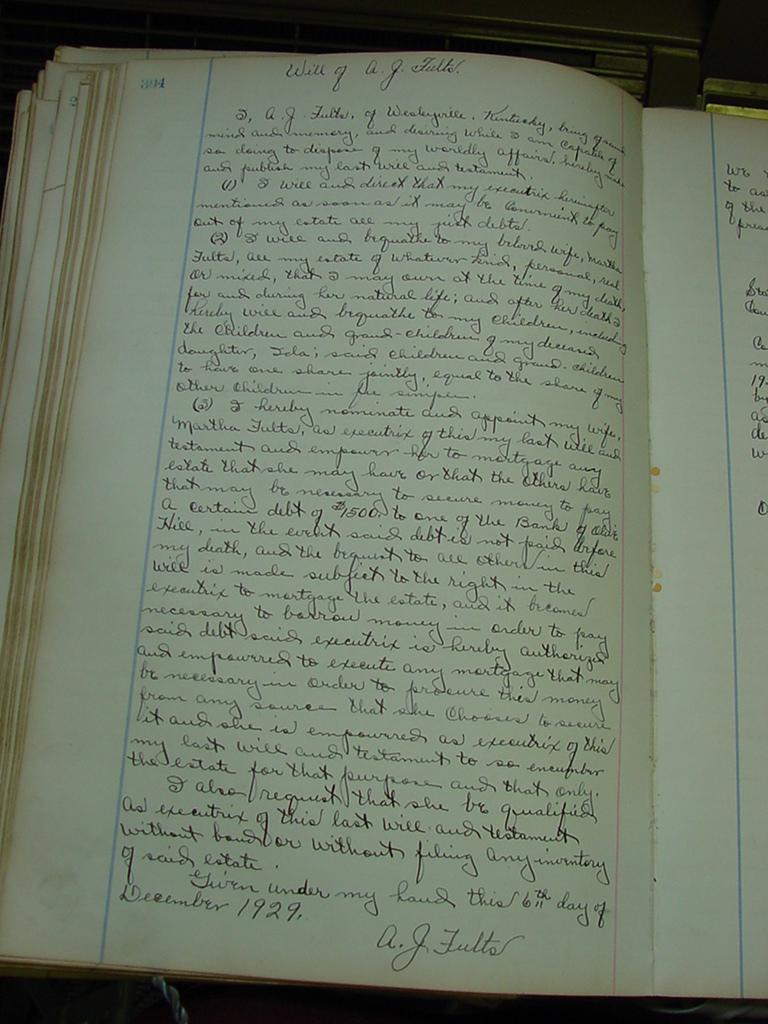 394
Will of A. J. Fults.
I, A. J. Fults, of Wesleyville, Kentucky, being of sound
mind and memory, and desiring while I am capable of
so doing to dispose of my worldly affairs, hereby make
and publish my last will and testament.
(1) I will and direct that my executrix hereinafter
mentioned as soon as it may be convenient to pay
out of my estate all my just debts.
(2) I will and bequathe to my beloved wife, Martha
Fults, all my estate of whatever kind, personal, real
or mixed, that I may own at the time of my death,
for and during her natural life; and after her death I
hereby will and bequathe to my children, including
the children and grand-children of my deceased
daughter, Iola; said children and grand-children
to have one share jointly, equal to the share of my
other children in fee simple.
(3) I hereby nominate and appoint my wife,
Martha Fults, as executrix of this my last will and
testament and empower her to mortgage any
estate that she may have or that the others have
that may be necessary to secure money to pay
a certain debt of $1500 to one of the Bank of Olive
Hill, in the event said debt is not paid before
my death, and the bequest to all others in this
will is made subject to the right in the
executrix to mortgage the estate, and it becomes
necessary to borrow money in order to pay
said debt said executrix is hereby authorized
and empowered to execute any mortgage that may
be necessary in order to procure this money
from any source that she chooses to secure
it and she is empowered as executrix of this
my last will and testament to so encumber
the estate for that purpose and that only.
I also request that she be qualified
as executrix of this last will and testament
without bond or without filing any inventory
of said estate.
Given under my hand this 6th day of
December 1929.
A. J. Fults
We
to as
of the
pres
Sta
Cou
Co
m
19
by
as
de
w